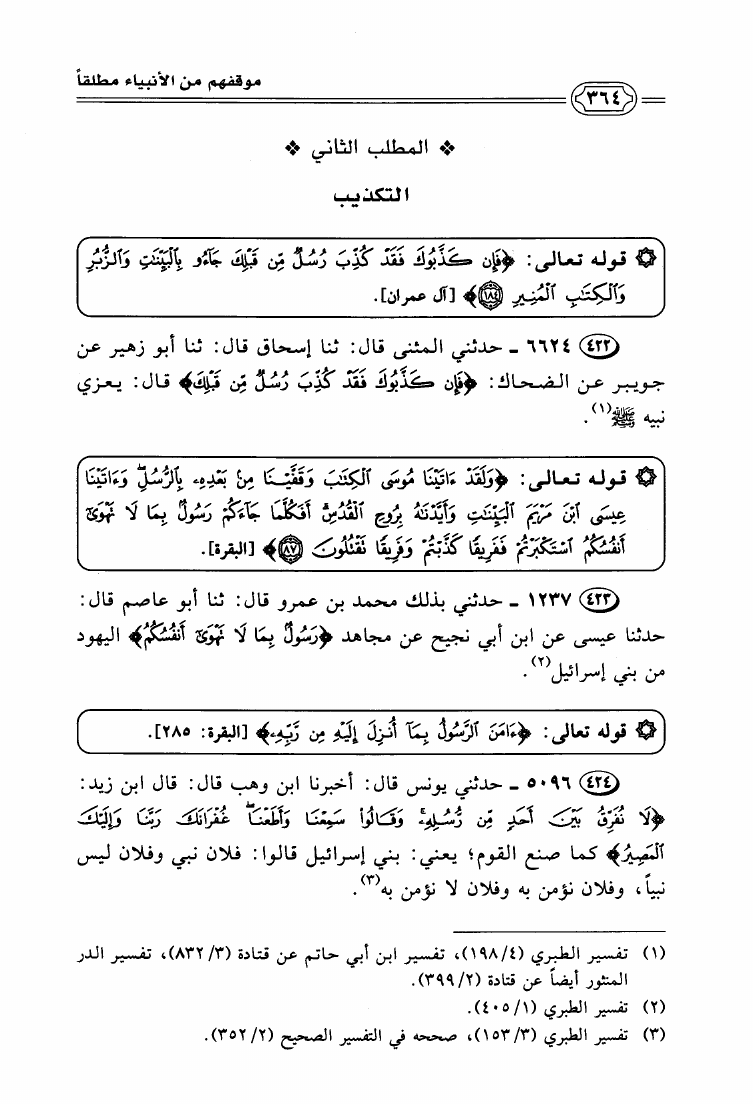 موقفهم من الأنبياء مطلقاً
٣٦٤
❖ المطلب الثاني ❖
التكذيب
۞ قوله تعالى: ﴿فَإِن كَذَّبُوكَ فَقَدْ كُذِّبَ رُسُلٌ مِّن قَبْلِكَ جَآءُو بِٱلْبَيِّنَٰتِ وَٱلزُّبُرِ
وَٱلْكِتَٰبِ ٱلْمُنِيرِ ۝١٨٤﴾ [آل عمران].
٤٢٢ ٦٦٢٤ ـ حدثني المثنى قال: ثنا إسحاق قال: ثنا أبو زهير عن
جويبر عن الضحاك: ﴿فَإِن كَذَّبُوكَ فَقَدْ كُذِّبَ رُسُلٌ مِّن قَبْلِكَ﴾ قال: يعزي
نبيه ﷺ(١).
۞ قوله تعالى: ﴿وَلَقَدْ ءَاتَيْنَا مُوسَى ٱلْكِتَٰبَ وَقَفَّيْنَا مِنۢ بَعْدِهِۦ بِٱلرُّسُلِۖ وَءَاتَيْنَا
عِيسَى ٱبْنَ مَرْيَمَ ٱلْبَيِّنَٰتِ وَأَيَّدْنَٰهُ بِرُوحِ ٱلْقُدُسِۗ أَفَكُلَّمَا جَآءَكُمْ رَسُولٌۢ بِمَا لَا تَهْوَىٰٓ
أَنفُسُكُمُ ٱسْتَكْبَرْتُمْ فَفَرِيقًا كَذَّبْتُمْ وَفَرِيقًا تَقْتُلُونَ ۝٨٧﴾ [البقرة].
٤٢٣ ١٢٣٧ ـ حدثني بذلك محمد بن عمرو قال: ثنا أبو عاصم قال:
حدثنا عيسى عن ابن أبي نجيح عن مجاهد ﴿رَسُولٌۢ بِمَا لَا تَهْوَىٰٓ أَنفُسُكُمُ﴾ اليهود
من بني إسرائيل(٢).
۞ قوله تعالى: ﴿ءَامَنَ ٱلرَّسُولُ بِمَآ أُنزِلَ إِلَيْهِ مِن رَّبِّهِۦ﴾ [البقرة: ٢٨٥].
٤٢٤ ٥٠٩٦ ـ حدثني يونس قال: أخبرنا ابن وهب قال: قال ابن زيد:
﴿لَا نُفَرِّقُ بَيْنَ أَحَدٍ مِّن رُّسُلِهِۦۚ وَقَالُوا۟ سَمِعْنَا وَأَطَعْنَاۖ غُفْرَانَكَ رَبَّنَا وَإِلَيْكَ
ٱلْمَصِيرُ﴾ كما صنع القوم؛ يعني: بني إسرائيل قالوا: فلان نبي وفلان ليس
نبياً، وفلان نؤمن به وفلان لا نؤمن به(٣).
(١) تفسير الطبري (١٩٨/٤)، تفسير ابن أبي حاتم عن قتادة (٨٣٢/٣)، تفسير الدر
المنثور أيضاً عن قتادة (٣٩٩/٢).
(٢) تفسير الطبري (٤٠٥/١).
(٣) تفسير الطبري (١٥٣/٣)، صححه في التفسير الصحيح (٣٥٢/٢).